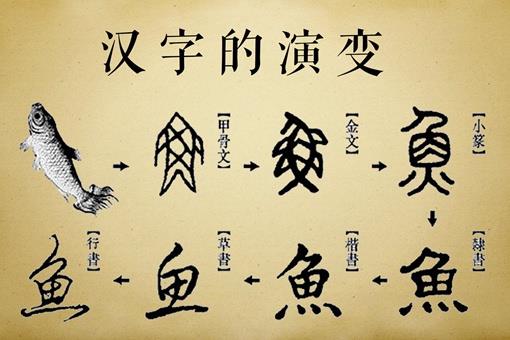 汉字的演变
魚
【甲骨文】
魚
【金文】
魚
【小篆】
魚
【隸書】
魚
【楷書】
魚
【草書】
魚
【行書】